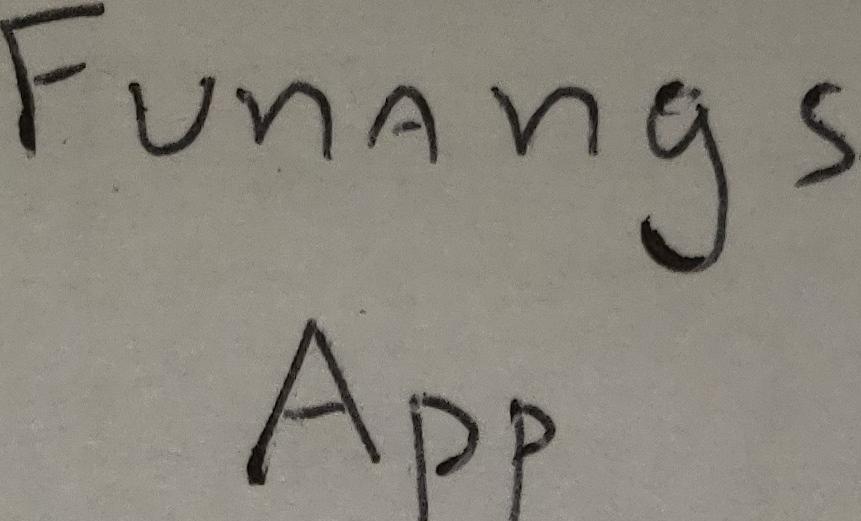 Funangs
App